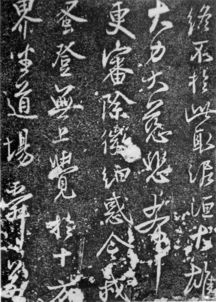 終不於此取泥洹大雄
大力大慈悲希
更審除微細惑令我
蚤登無上覺於十方
界坐道場舜若